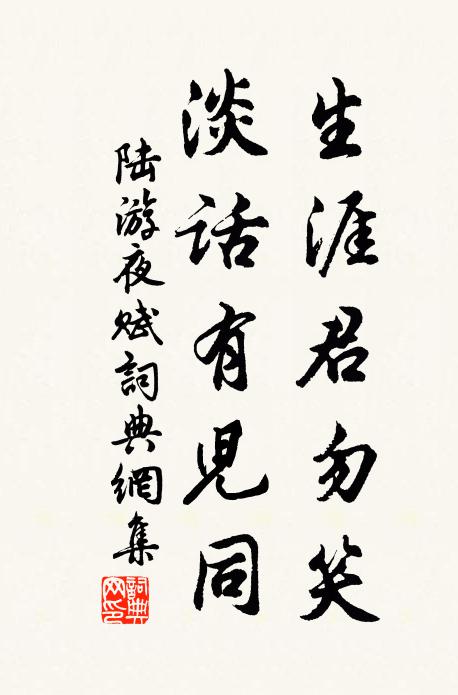 生涯君勿笑
淡话有兒同
陆游夜赋詞典網集
詞典网印